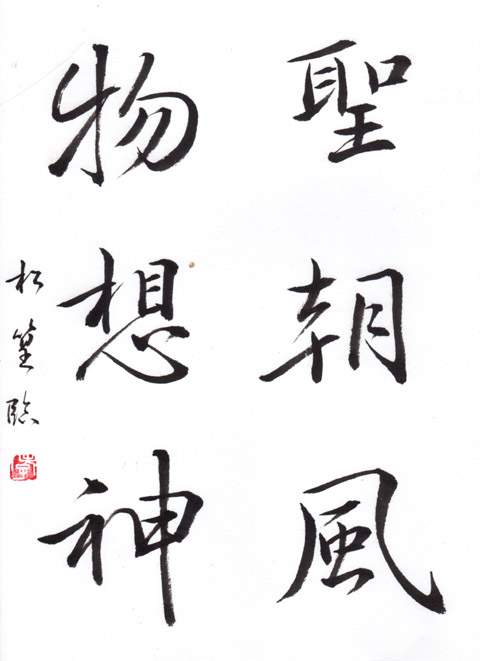 聖朝風
物想神
松篁臨